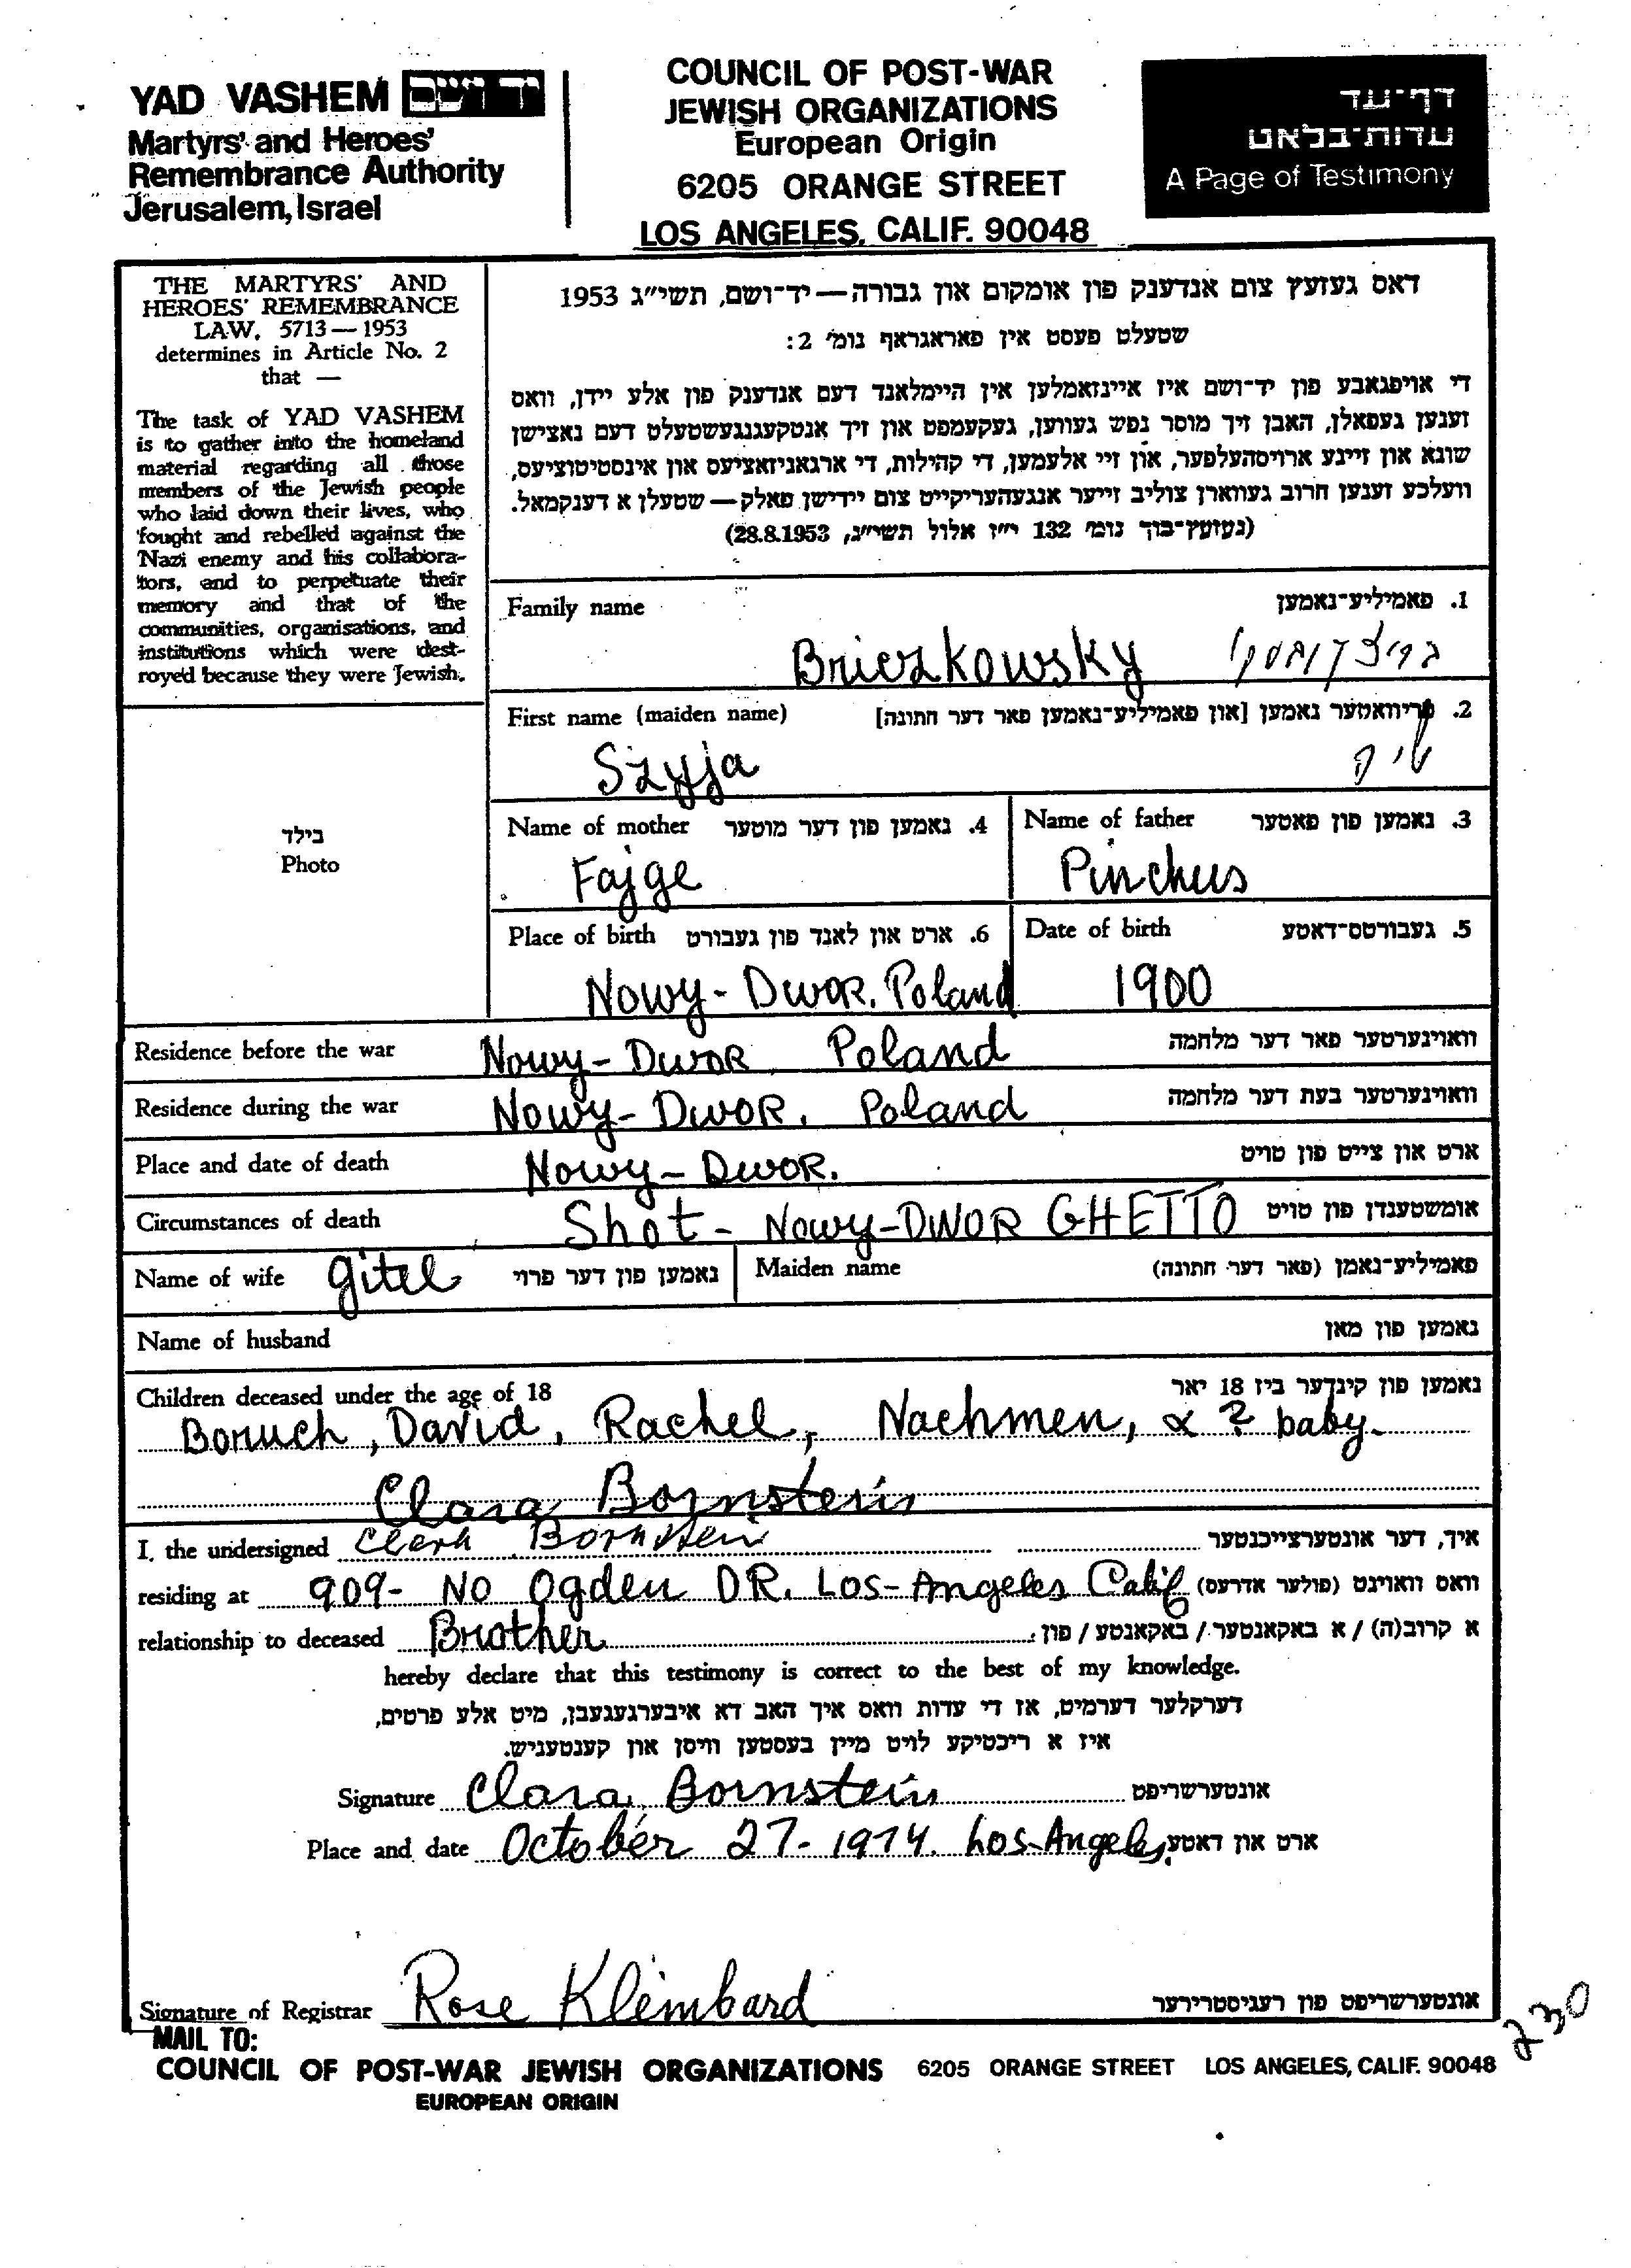 YAD VASHEM יד ושם
Martyrs' and Heroes'
Remembrance Authority
Jerusalem, Israel
COUNCIL OF POST-WAR
JEWISH ORGANIZATIONS
European Origin
6205 ORANGE STREET
LOS ANGELES, CALIF. 90048
דף-עד
עדות-בלאט
A Page of Testimony
THE MARTYRS' AND
HEROES' REMEMBRANCE
LAW, 5713—1953
determines in Article No. 2
that —
The task of YAD VASHEM
is to gather into the homeland
material regarding all those
members of the Jewish people
who laid down their lives, who
fought and rebelled against the
Nazi enemy and his collabora-
tors, and to perpetuate their
memory and that of the
communities, organisations, and
institutions which were dest-
royed because they were Jewish.
דאס געזעץ צום אנדענק פון אומקום און גבורה—יד-ושם, תשי"ג 1953
שטעלט פעסט אין פאראגראף נומ' 2:
די אויפגאבע פון יד-ושם איז איינזאמלען אין היימלאנד דעם אנדענק פון אלע יידן, וואס
זענען געפאלן, האבן זיך מוסר נפש געווען, געקעמפט און זיך אנטקעגנגעשטעלט דעם נאצישן
שונא און זיינע ארויסהעלפער, און זיי אלעמען, די קהילות, די ארגאניזאציעס און אינסטיטוציעס,
וועלכע זענען חרוב געווארן צוליב זייער אנגעהעריקייט צום יידישן פאלק—שטעלן א דענקמאל.
(געזעץ-בוך נומ' 132 י"ז אלול תשי"ג, 28.8.1953)
Family name 1. פאמיליע-נאמען
Brieszkowsky
First name (maiden name) 2. פריוואטער נאמען [און פאמיליע-נאמען פאר דער חתונה]
Szyja
בילד
Photo
Name of mother 4. נאמען פון דער מוטער Name of father 3. נאמען פון פאטער
Fajge Pinchus
Place of birth 6. ארט און לאנד פון געבורט Date of birth 5. געבורטס-דאטע
Nowy-Dwor. Poland 1900
Residence before the war Nowy-Dwor Poland וואוינערטער פאר דער מלחמה
Residence during the war Nowy-Dwor. Poland וואוינערטער בעת דער מלחמה
Place and date of death Nowy-Dwor. ארט און צייט פון טויט
Circumstances of death Shot - Nowy-DWOR GHETTO אומשטענדן פון טויט
Name of wife gitel נאמען פון דער פרוי Maiden name פאמיליע-נאמן (פאר דער חתונה)
Name of husband נאמען פון מאן
Children deceased under the age of 18 נאמען פון קינדער ביז 18 יאר
Boruch, David, Rachel, Nachmen, & ? baby.
Clara Bornstein
I, the undersigned Clara Bornstein איך, דער אונטערצייכנטער
residing at 909- NO Ogden DR. Los-Angeles Calif וואס וואוינט (פולער אדרעס)
relationship to deceased Brother א קרוב(ה) / א באקאנטער / באקאנטע / פון:
hereby declare that this testimony is correct to the best of my knowledge.
דערקלער דערמיט, אז די עדות וואס איך האב דא איבערגעגעבן, מיט אלע פרטים,
איז א ריכטיקע לויט מיין בעסטען וויסן און קענטעניש.
Signature Clara Bornstein אונטערשריפט
Place and date October 27-1974. Los-Angeles. ארט און דאטע
Signature of Registrar Rose Klembard אונטערשריפט פון רעגיסטרירער
230
MAIL TO:
COUNCIL OF POST-WAR JEWISH ORGANIZATIONS 6205 ORANGE STREET LOS ANGELES, CALIF. 90048
EUROPEAN ORIGIN